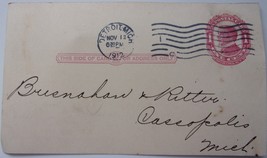 DETROIT, MICH
NOV 13
6 PM
1912
THIS SIDE OF CARD IS FOR ADDRESS ONLY
Bresnahan & Ritter
Cassopolis
Mich.